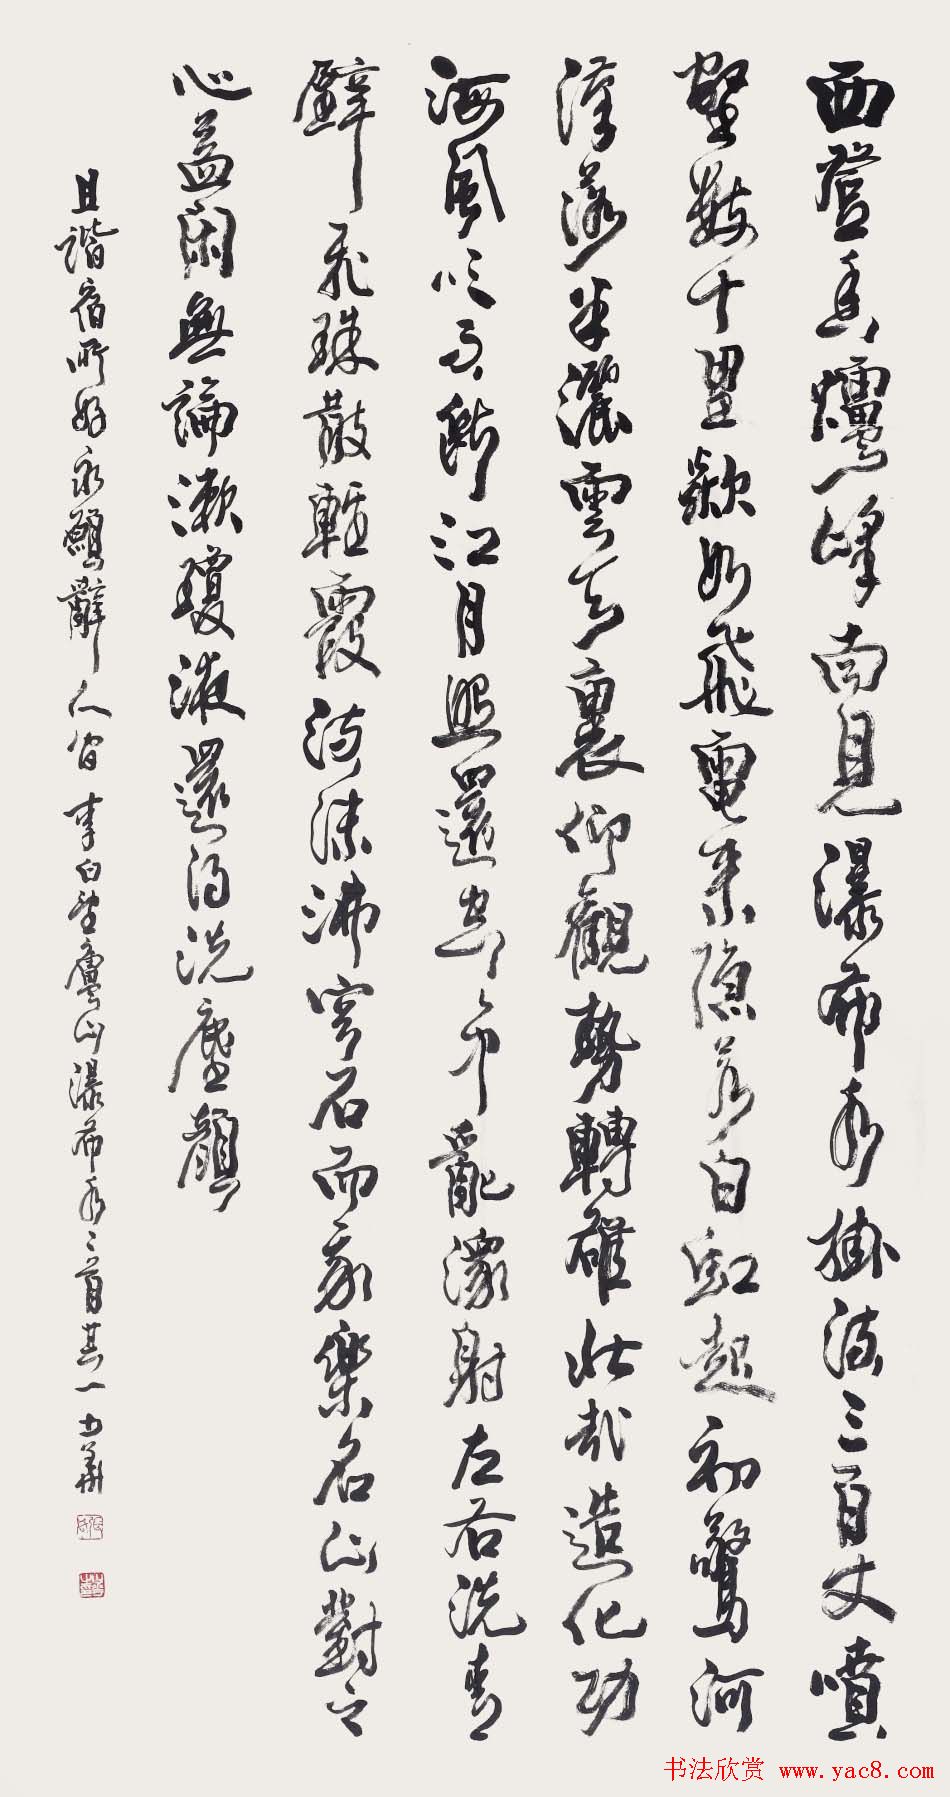 西登香爐峰南見瀑布水掛流三百丈噴
壑數十里欻如飛電來隱若白虹起初驚河
漢落半灑雲天裏仰觀勢轉雄壯哉造化功
海風吹不斷江月照還空〻中亂潨射左右洗青
壁飛珠散輕霞流沫沸穹石而我樂名山對之
心益閑無論漱瓊液還得洗塵顏
且諧宿所好永願辭人間 李白望廬山瀑布水二首其一
书法欣赏 www.yac8.com